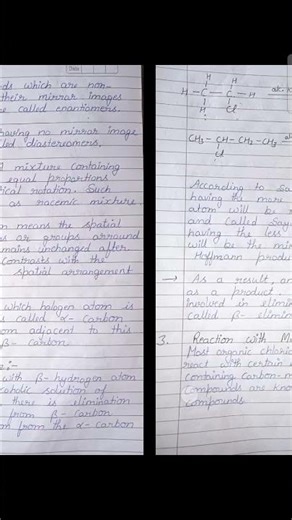 ds which are non-
their mirror images
e called enantiomers.
having no mirror image
lled diastereomers.
mixture containing
equal proportions
ical rotation. Such
as racemic mixture.
n means the spatial
s are groups arround
mains unchanged after
Contrasts with the
spatial arrangement
which halogen atom is
s called α-carbon
om adjacent to this
β-carbon.
e:-
with β-hydrogen atom
coholic solution of
there is elimination
from β-carbon
m from the α-carbon
H H
H-C-C-H
H Cl
CH3-CH-CH2-CH3
Cl
According to Sa
having the more
atom will be
and called Say
having the less
will be the min
Hoffmann produ
→ As a result, an
as a product.
involved in elimin
called β-elimin
3. Reaction with M
Most organic chlorid
react with certain
containing carbon-m
compounds are know
compounds